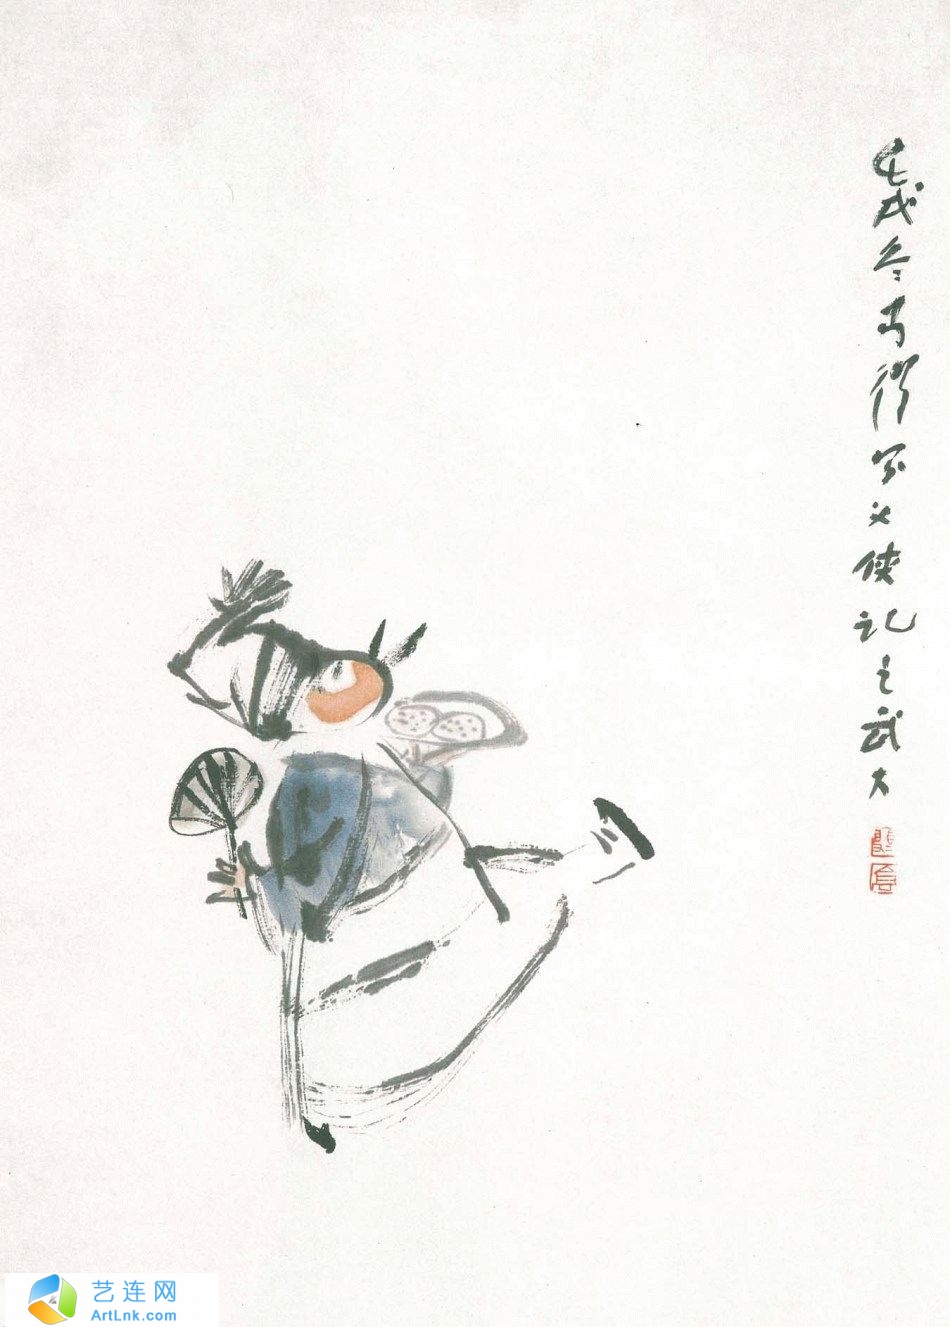 壬戌冬写义侠记之武大
艺连网
ArtLnk.com